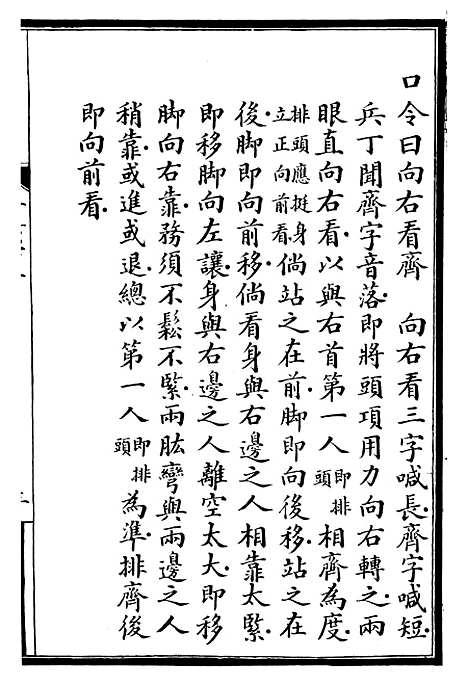 口令曰向右看齊　向右看三字喊長齊字喊短
兵丁聞齊字音落即將頭項用力向右轉之兩
眼直向右看以與右首第一人即排頭相齊為度
排頭應挺身立正向前看倘站之在前脚即向後移站之在
後脚即向前移倘看身與右邊之人相靠太緊
即移脚向左讓身與右邊之人離空太大即移
脚向右靠務須不鬆不緊兩肱彎與兩邊之人
稍靠或進或退總以第一人即排頭為準排齊後
即向前看